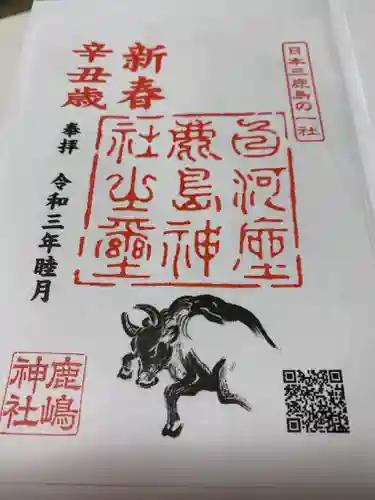 日本三鹿島の一社
新春
辛丑歳
奉拝
令和三年睦月
白河座
鹿島神
社之璽
鹿嶋
神社